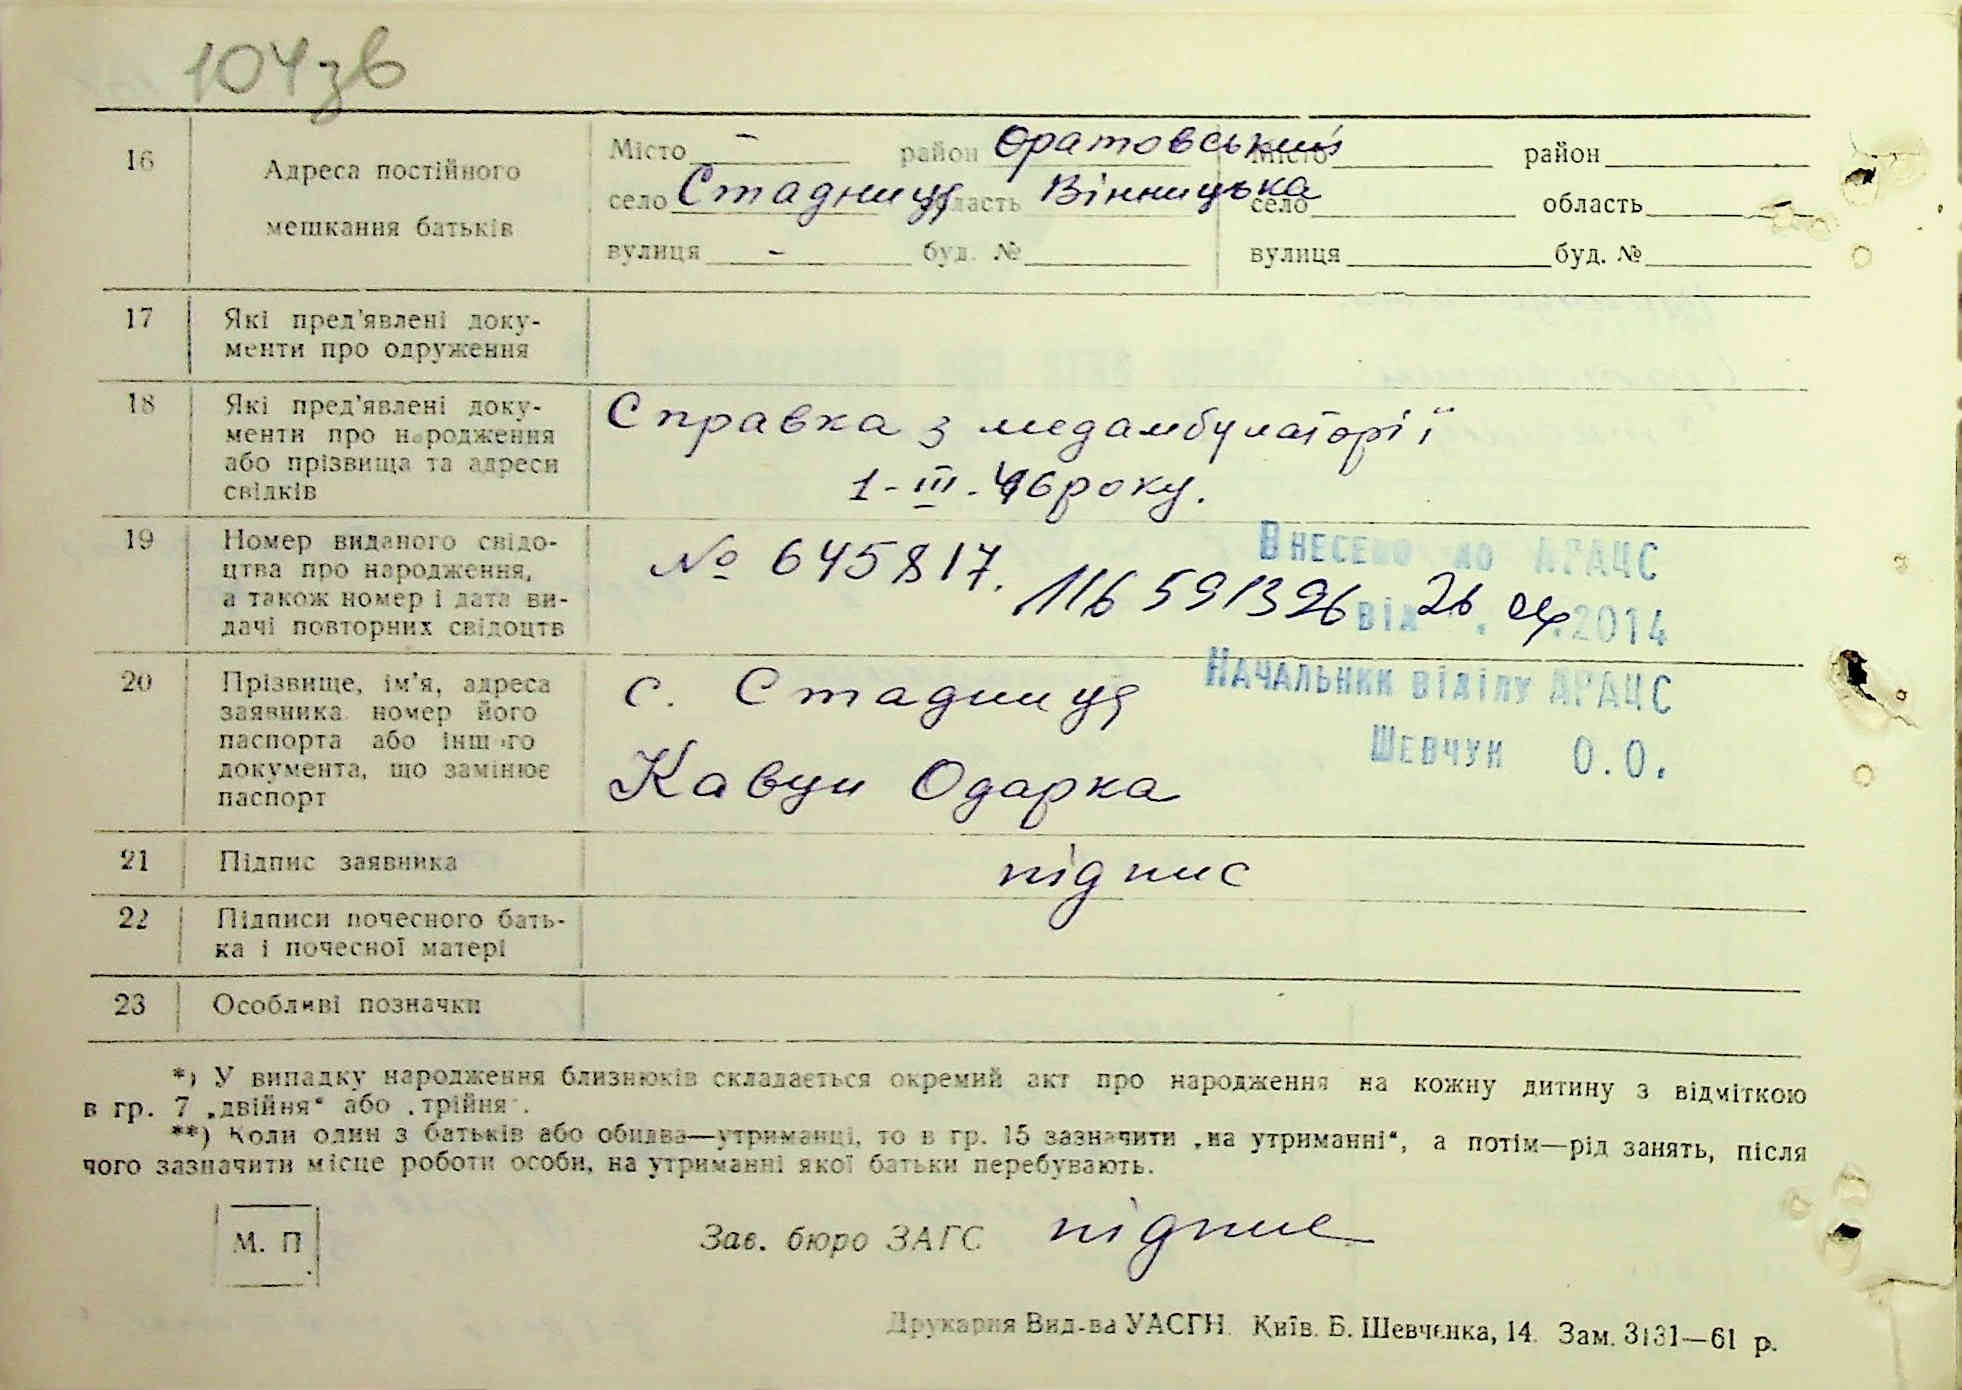 104зв
16 Адреса постійного мешкання батьків
Місто - район Оратовський Місто район
село Стадниця область Вінницька село область
вулиця - буд. № вулиця буд. №
17 Які пред'явлені доку-
менти про одруження
18 Які пред'явлені доку-
менти про народження
або прізвища та адреси
свідків
Справка з медамбулаторії
1-III-46 року.
19 Номер виданого свідо-
цтва про народження,
а також номер і дата ви-
дачі повторних свідоцтв
№ 645817.
Внесено до АРАЦС
від 26 .2014
Начальник відділу АРАЦС
Шевчук О.О.
20 Прізвище, ім'я, адреса
заявника номер його
паспорта або іншого
документа, що замінює
паспорт
с. Стадниця
Кавун Одарка
21 Підпис заявника підпис
22 Підписи почесного бать-
ка і почесної матері
23 Особливі позначки
*) У випадку народження близнюків складається окремий акт про народження на кожну дитину з відміткою
в гр. 7 „двійня“ або „трійня“.
**) Коли один з батьків або обидва—утриманці, то в гр. 15 зазначити „на утриманні“, а потім—рід занять, після
чого зазначити місце роботи особи, на утриманні якої батьки перебувають.
М. П
Зав. бюро ЗАГС підпис
Друкарня Вид-ва УАСГН. Київ. Б. Шевченка, 14. Зам. 3131—61 р.